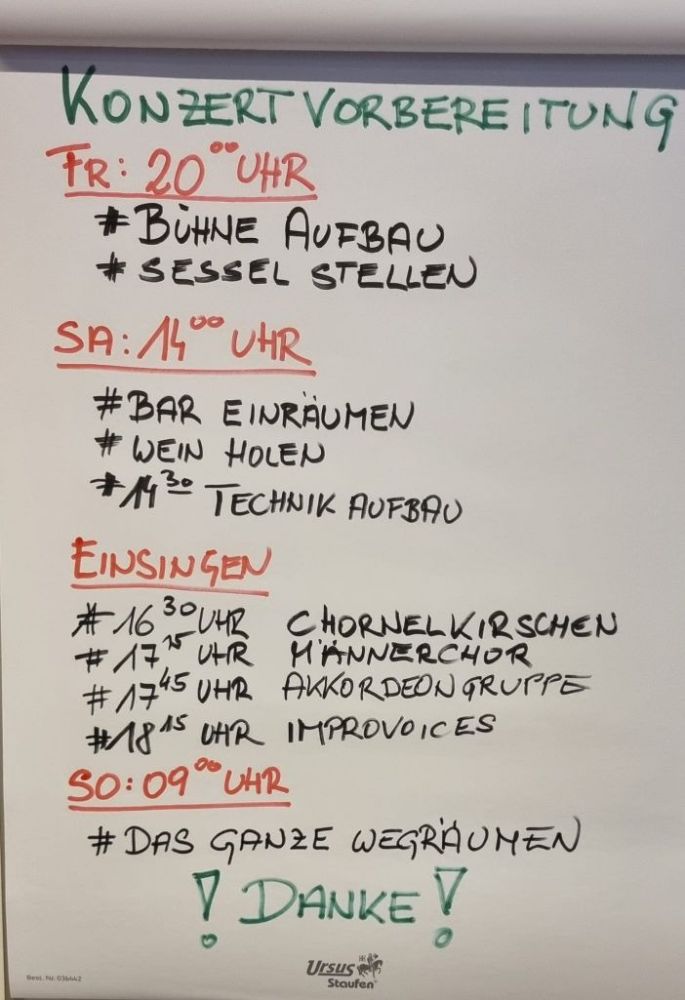 KONZERTVORBEREITUNG
FR: 20⁰⁰ UHR
# BÜHNE AUFBAU
# SESSEL STELLEN
SA: 14⁰⁰ UHR
# BAR EINRÄUMEN
# WEIN HOLEN
# 14³⁰ TECHNIK AUFBAU
EINSINGEN
# 16³⁰ UHR CHORNELKIRSCHEN
# 17¹⁵ UHR MÄNNERCHOR
# 17⁴⁵ UHR AKKORDEONGRUPPE
# 18¹⁵ UHR IMPROVOICES
SO: 09⁰⁰ UHR
# DAS GANZE WEGRÄUMEN
! DANKE !
Best. Nr. 036442
Ursus
Staufen